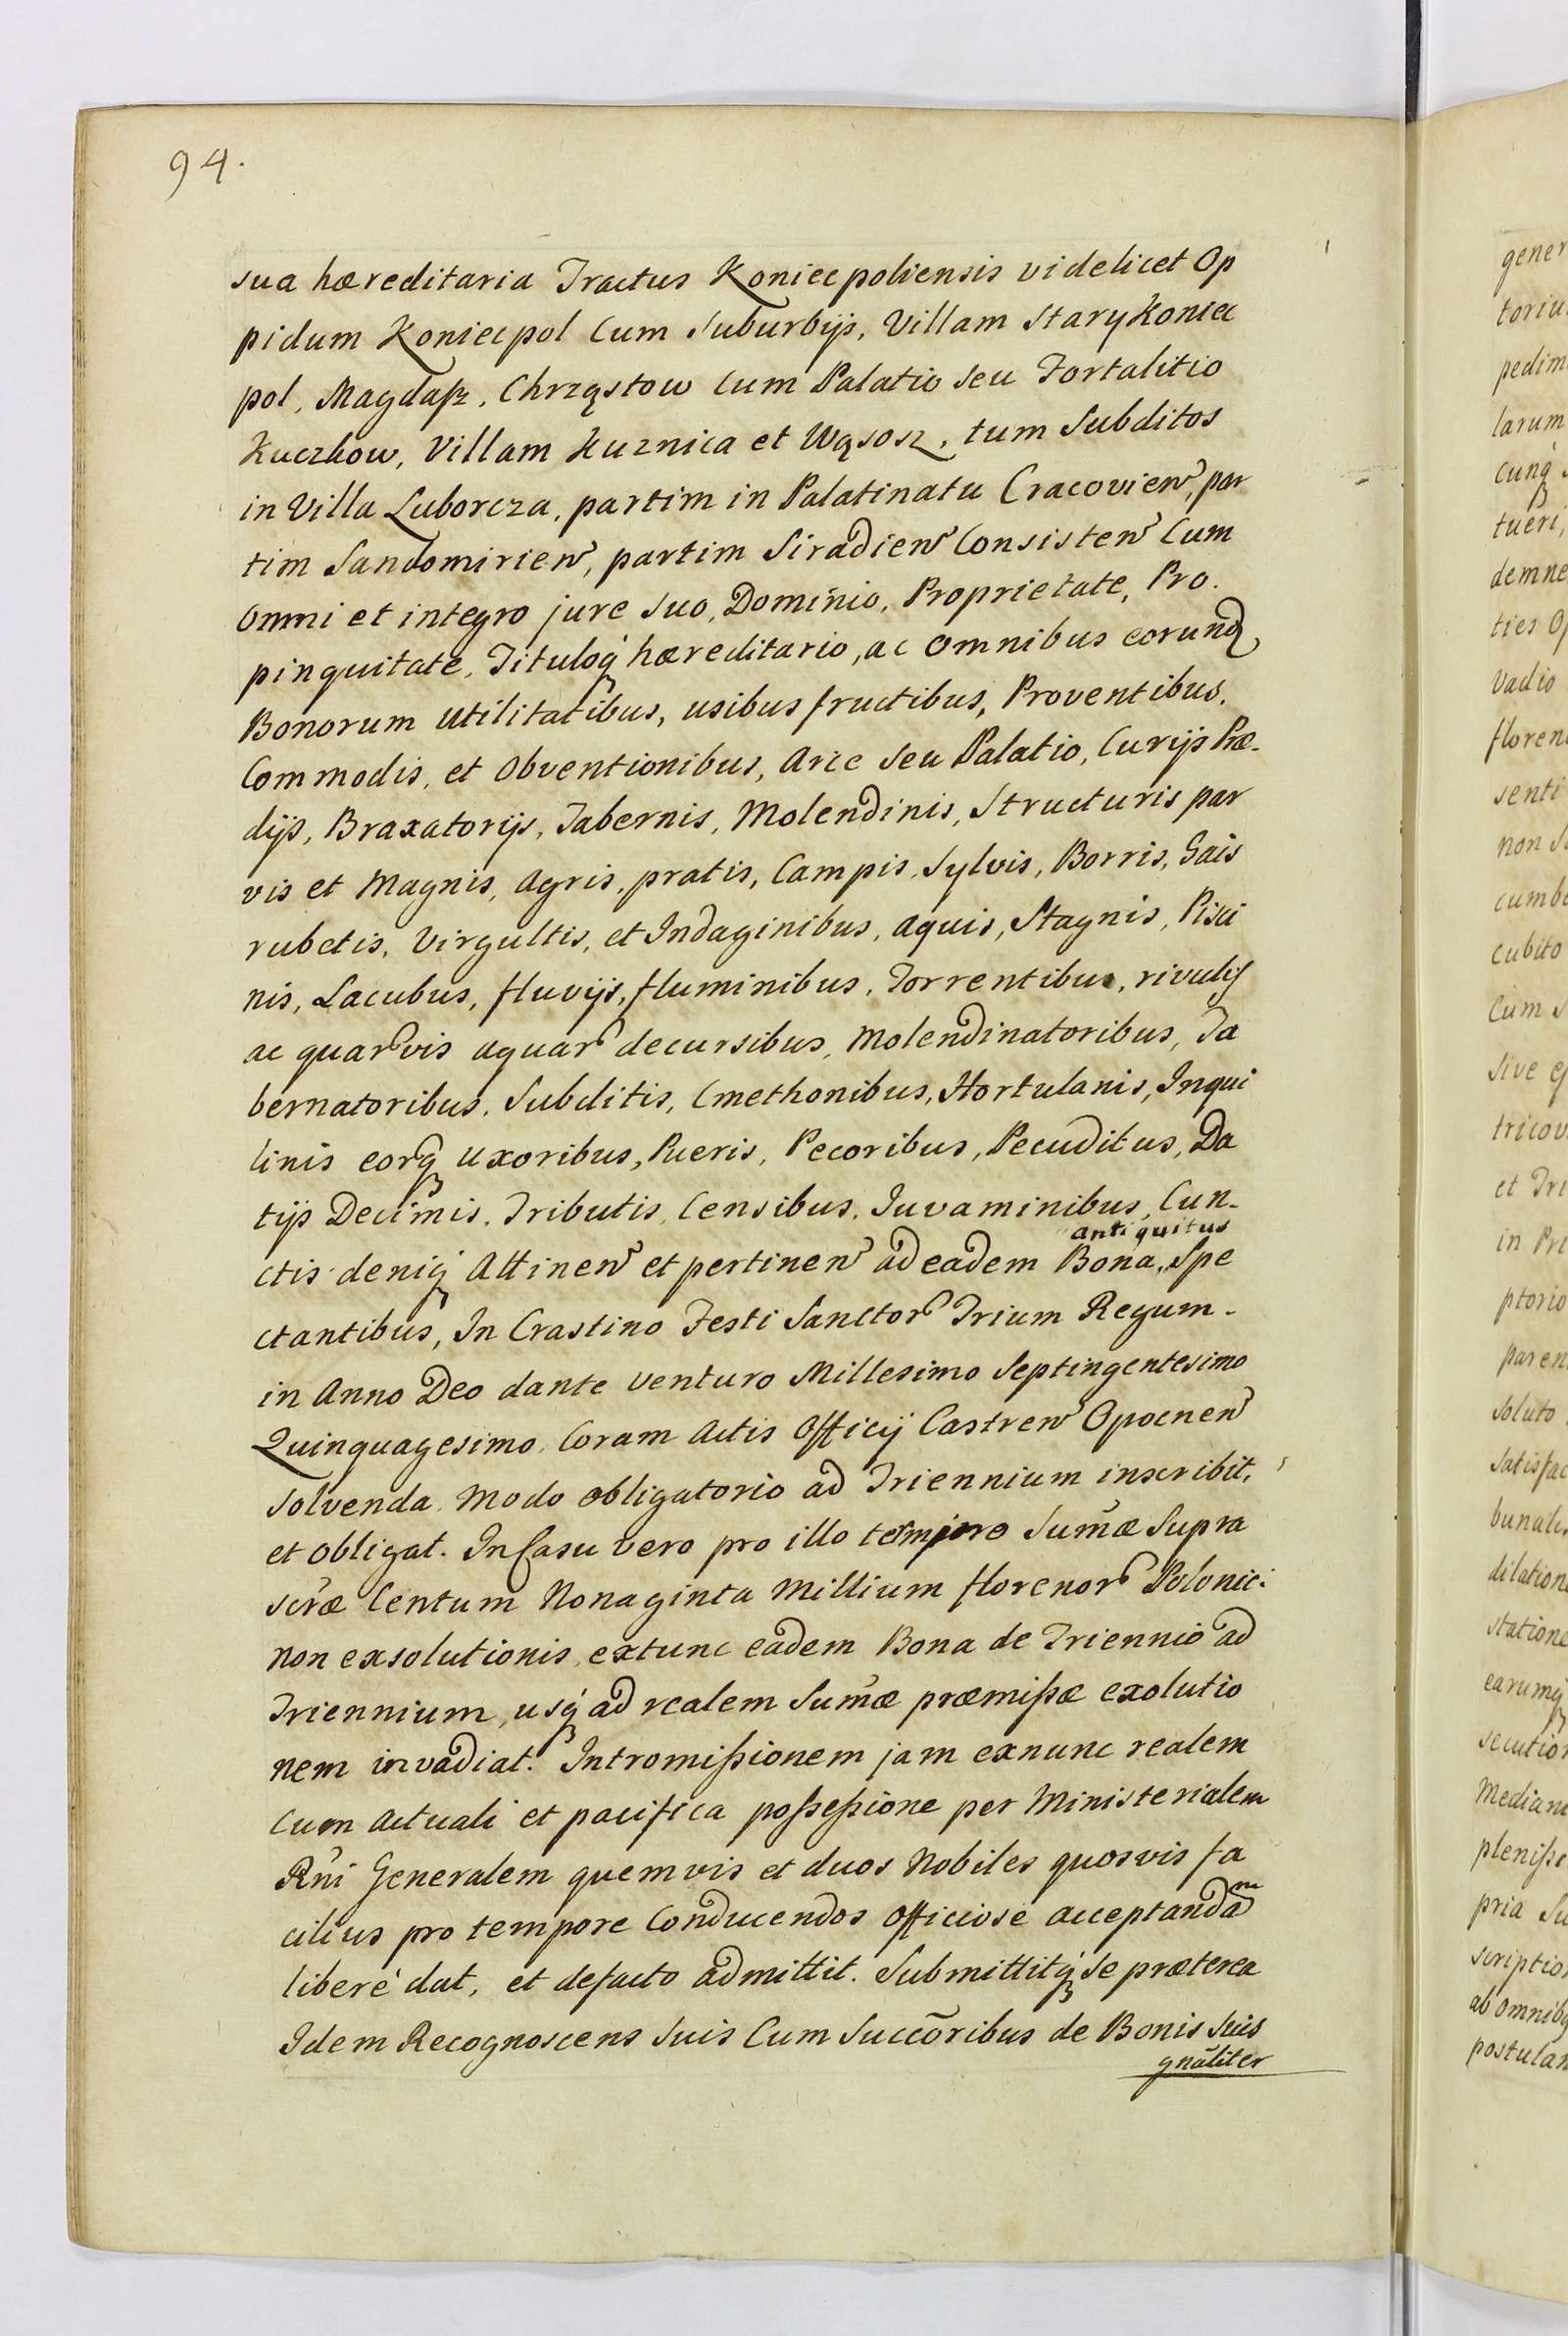 94.
sua hæreditaria Tractus Koniecpoliensis videlicet Op
pidum Koniecpol Cum Suburbijs, Villam Stary Koniec
pol, Magdaß, Chrząstow Cum Palatio seu Fortalitio
Kuczkow, Villam Kuznica et Wąsosz, tum Subditos
in Villa Luborcza, partim in Palatinatu Cracovien, par
tim Sandomirien, partim Siradien Consisten Cum
Omni et integro jure suo, Dominio, Proprietate, Pro.
pinquitate, Tituloq́ hæreditario, ac Omnibus eorunđ
Bonorum Utilitatibus, usibus fructibus, Proventibus,
Commodis, et Obventionibus, Arce seu Palatio, Curijs Præ-
dijs, Braxatorijs, Tabernis, Molendinis, Structuris par
vis et Magnis, Agris, pratis, Campis, Sylvis, Borris, Gais
rubetis, Virgultis, et Indaginibus, Aquis, Stagnis, Pisci
nis, Lacubus, fluvijs, fluminibus, Torrentibus, rivulis
ac quarvis aquar decursibus, Molendinatoribus, Ta
bernatoribus, Subditis, Cmethonibus, Hortulanis, Inqui
linis eorq́ Uxoribus, Pueris, Pecoribus, Pecuditus, Da
tijs Decimis, Tributis, Censibus, Juvaminibus, Cun-
antiquitus
ctis deniq́ Attinen et pertinen ad eadem Bona, Spe
ctantibus, In Crastino Festi Sanctor Trium Regum-
in Anno Deo dante venturo Millesimo Septingentesimo
Quinquagesimo Coram Actis Officij Castren Opocnen
Solvenda Modo obligatorio ad Triennium inscribit,
et obligat. In Casu vero pro illo termino Sum̃æ Supra
scr̃æ Centum Nonaginta Millium florenor Polonic:
non exsolutionis, extunc eadem Bona de Triennio ad
Triennium, usq́ ad realem Sum̃æ præmißæ exolutio
nem invadiat. Intromißionem jam exnunc realem
cum Actuali et pacifica poßeßione per Ministerialem
Rñi Generalem quemvis et duos Nobiles quosvis fa
cilius pro tempore Conducendos Officiosé acceptandam
liberé dat, et defacto admittit. Submittitq́ Se præterea
Idem Recognoscens Suis Cum Succõribus de Bonis Suis
gnãliter
gener
toriu
pedim
larum
cunq́
tueri,
demne
ties Op
Vadio
floren
senti
non S
cumb
cubito
Cum s
Sive
tricov
et Tri
in Pri
ptorio
paren
soluto
Satisfac
bunalis
dilation
statione
earumq́
secution
Median
pleniße
pria Su
scriptio
ab omnibq
postulan